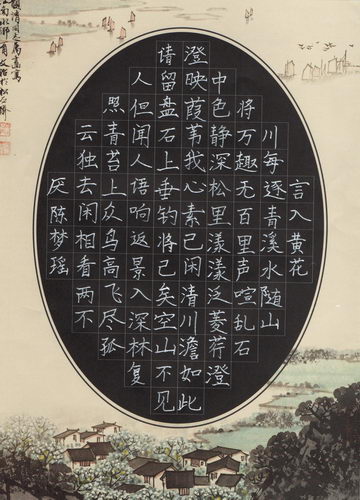 言入黄花
川每逐青溪水随山
将万趣无百里声喧乱石
中色静深松里漾漾泛菱荇澄
澄映葭苇我心素己闲清川澹如此
请留盘石上垂钓将己矣空山不见
人但闻人语响返景入深林复
照青苔上众鸟高飞尽孤
云独去闲相看两不
厌陈梦瑶